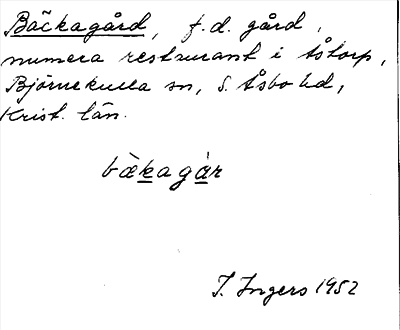 Bäckagård, f.d. gård,
numera restaurant i Åstorp,
Björnekulla sn, S. Åsbo hd,
Krist. län.
bàkagár
I. Ingers 1952